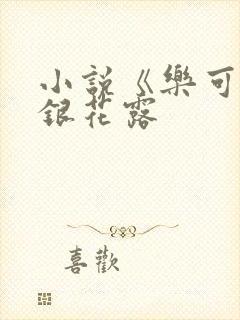 小說《樂可
銀花露
喜歡